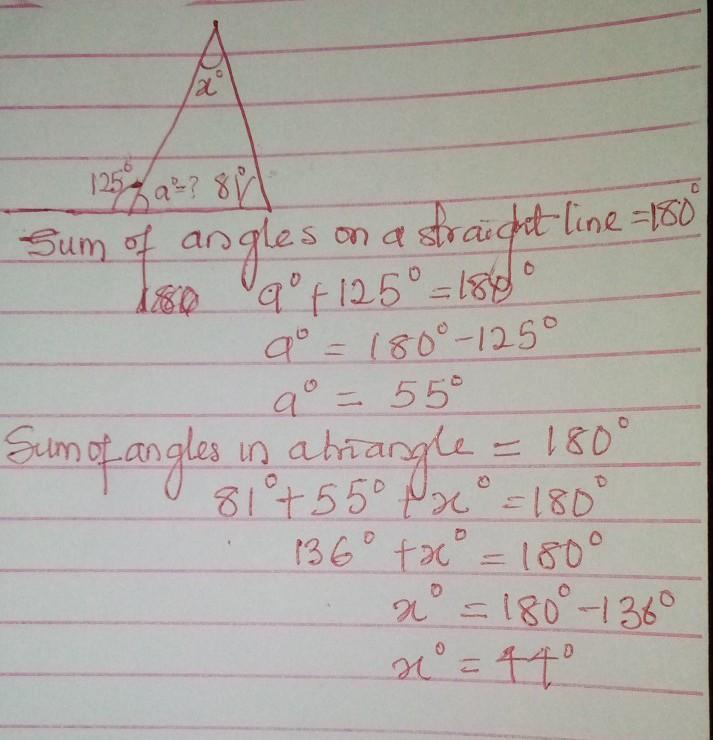 x°
125° a°=? 81°
Sum of angles on a straight line = 180°
180 a° + 125° = 180°
a° = 180° - 125°
a° = 55°
Sum of angles in a triangle = 180°
81° + 55° + x° = 180°
136° + x° = 180°
x° = 180° - 136°
x° = 44°